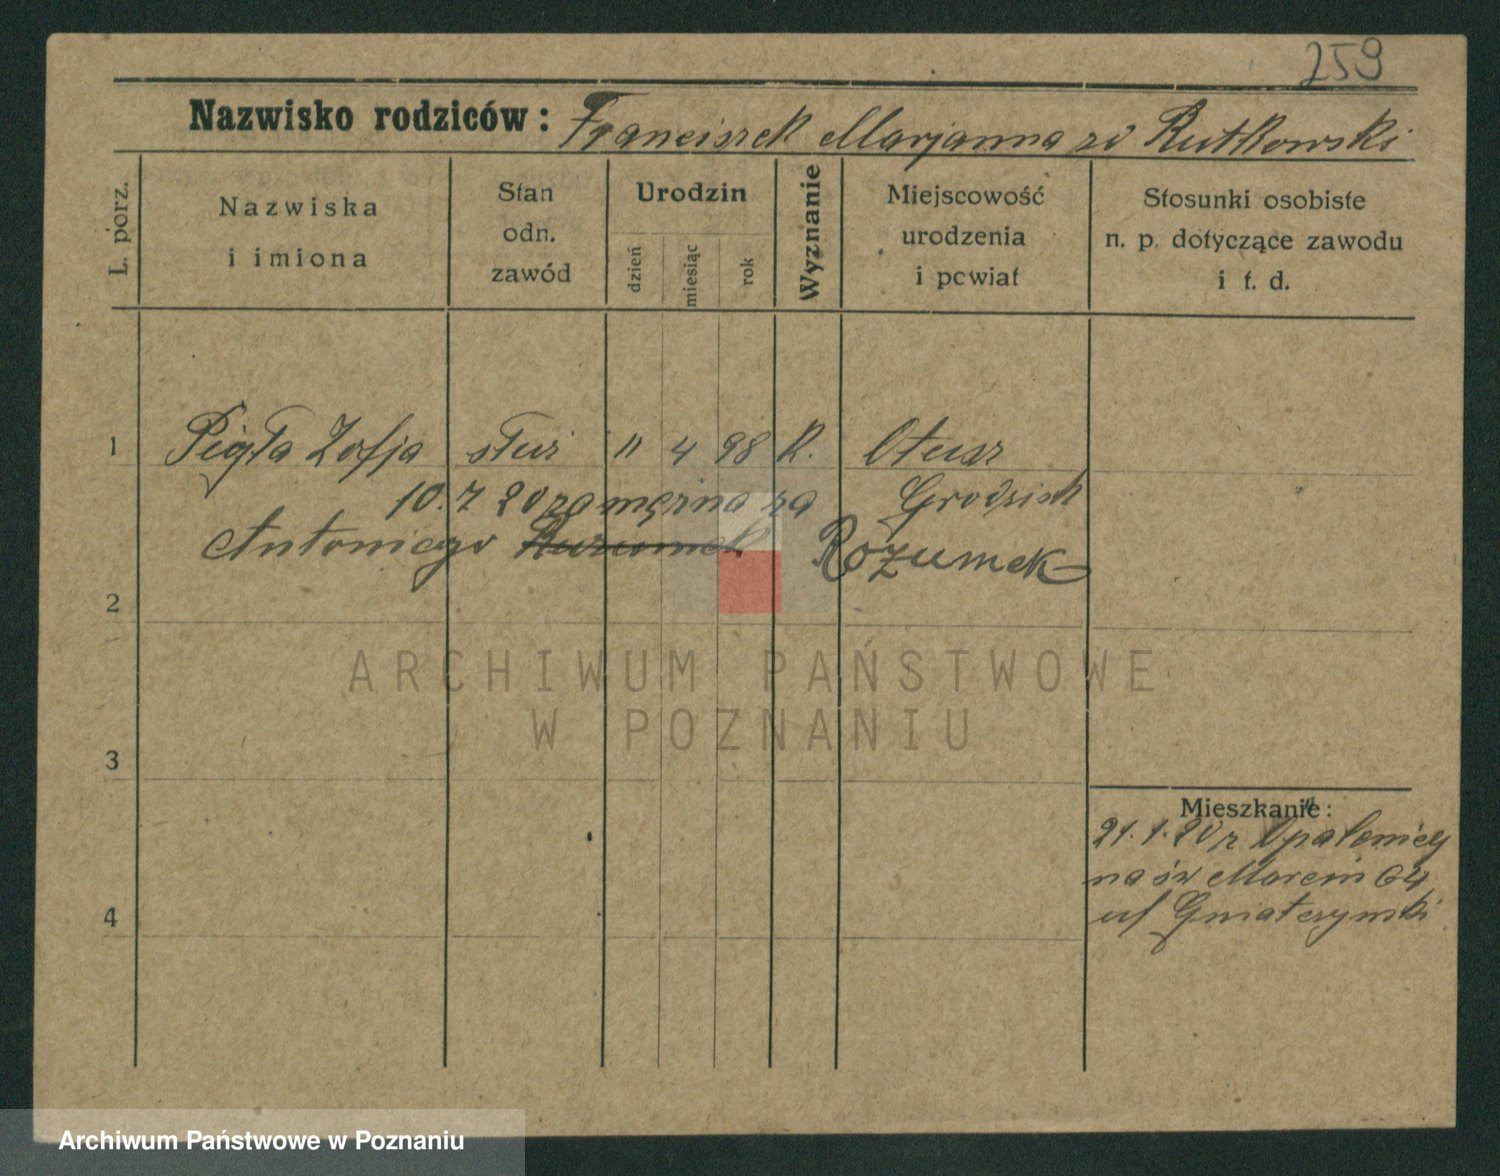 259
Nazwisko rodziców: Franciszek Marjanna zd Rutkowski
L. porz.
Nazwiska i imiona
Stan odn. zawód
Urodzin
dzień
miesiąc
rok
Wyznanie
Miejscowość urodzenia i powiat
Stosunki osobiste n. p. dotyczące zawodu i t. d.
1 Pigła Zofja służ 11 4 98 R. Otusz
10.7 20 zamężna za Grodzisk
Antoniego Rozumek
2
ARCHIWUM PAŃSTWOWE
W POZNANIU
3
Mieszkanie:
21.1.20 z Opalenicy
na św Marcin 64
4
Archiwum Państwowe w Poznaniu